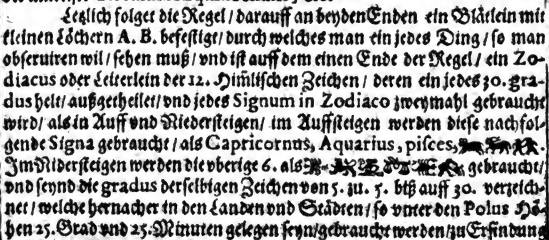 Letzlich folget die Regel / darauff an beyden Enden ein Blätlein mit
kleinen Löchern A. B. befestigt / durch welches man ein jedes Ding / so man
obseruiren wil / sehen muß / vnd ist auff dem einen Ende der Regel / ein Zo-
diacus oder Leiterlein der 12. Himlischen Zeichen / deren ein jedes 30. gra-
dus helt / außgetheilet / vnd jedes Signum in Zodiaco zweymahl gebraucht
wird / als in Auff vnd Niedersteigen / im Auffsteigen werden diese nachfol-
gende Signa gebraucht / als Capricornus, Aquarius, pisces,
Im Nidersteigen werden die vberige 6. als gebraucht /
vnd seynd die gradus derselbigen Zeichen von 5. zu. 5. biß auff 30. verzeich-
net / welche hernacher in den Landen vnd Städten / so vnter den Polus Hö-
hen 25. Grad vnd 25. Minuten gelegen seyn / gebraucht werden / zu Erfindung